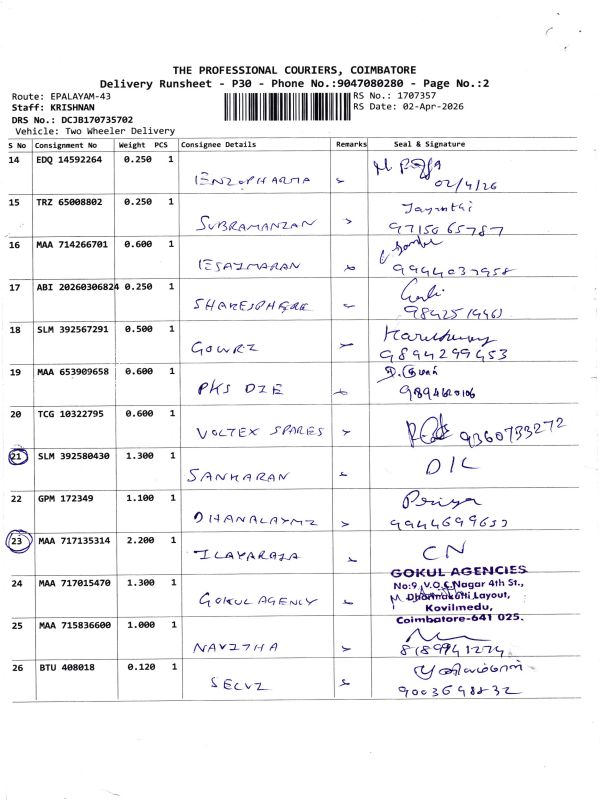 THE PROFESSIONAL COURIERS, COIMBATORE
Delivery Runsheet - P30 - Phone No.:9047080280 - Page No.:2
Route: EPALAYAM-43 RS No.: 1707357
Staff: KRISHNAN RS Date: 02-Apr-2026
DRS No.: DCJB170735702
Vehicle: Two Wheeler Delivery
S No Consignment No Weight PCS Consignee Details Remarks Seal & Signature
14 EDQ 14592264 0.250 1
IENZOPHARMA 02/4/26
15 TRZ 65008802 0.250 1 Jayanthi
SUBRAMANZAN 9715065787
16 MAA 714266701 0.600 1
IESAIMARAN 9944037958
17 ABI 20260306824 0.250 1
18 SLM 392567291 0.500 1
GOWRZ 9894299453
19 MAA 653909658 0.600 1
PKS DZE 9894620106
20 TCG 10322795 0.600 1
VOLTEX SPARES 9360733272
21 SLM 392580430 1.300 1 D/L
SANKARAN
22 GPM 172349 1.100 1 Priya
DHANALAYMZ 9944699633
23 MAA 717135314 2.200 1 CN
ILAYARAJA
GOKUL AGENCIES
24 MAA 717015470 1.300 1 No:9, V.O.C.Nagar 4th St.,
GOKUL AGENCY Layout,
Kovilmedu,
Coimbatore-641 025.
25 MAA 715836600 1.000 1
NAVZTHA 8189941274
26 BTU 408018 0.120 1
SELVZ 9003698832